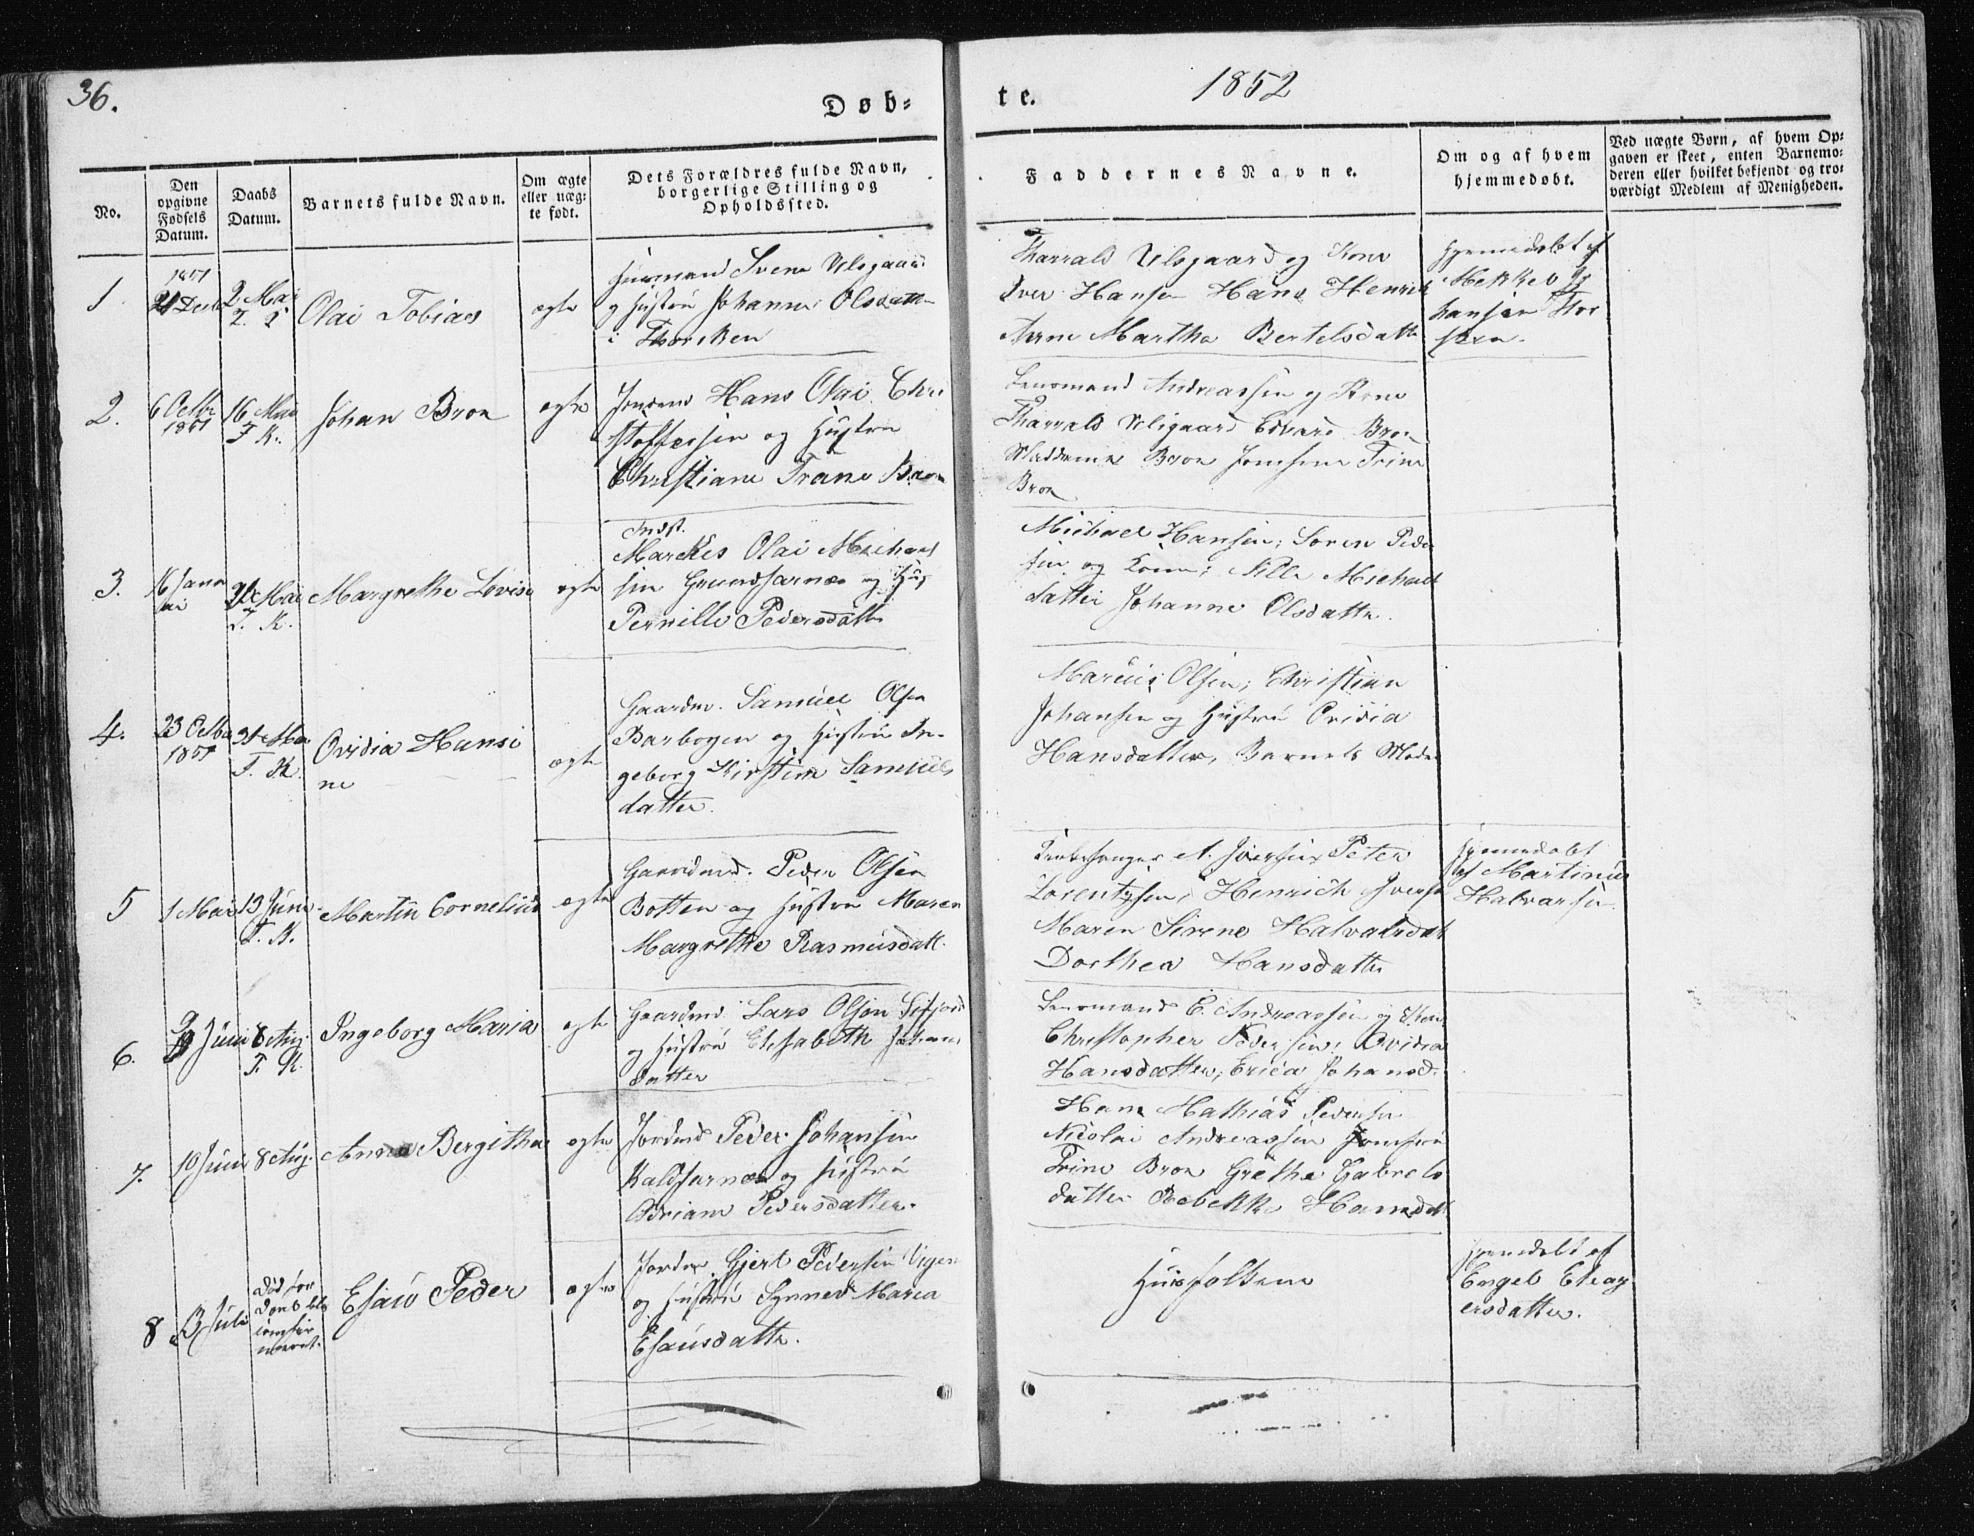 36.
Døb-
te.
1852
No.
Den opgivne Fødsels Datum.
Daabs Datum.
Barnets fulde Navn.
Om ægte eller uægte født.
Dets Forældres fulde Navn, borgerlige Stilling og Opholdssted.
Faddernes Navne.
Om og af hvem hjemmedøbt.
Ved uægte Børn, af hvem Opgaven er skeet, enten Barnemoderen eller hvilket bekjendt og troværdigt Medlem af Menigheden.
1
1851
2 Mai
Olai Tobias
ægte
Huusmand Svend
og Hustru Johanna Olsdatter
i Thorsken
Tharrald og Kone
Iver Hansen Hans Henrik
Anne Martha Bertelsdatter
Hjemmedøbt af
2.
6 Octbr
1851
16 Mai
T. K.
Johan Bron
ægte
Jordmd Hans Olai Chri
stoffersen og Hustru
Christiane Trane Bron
Lensmand Andreassen og Kone
Tharrald Edvard Bron
Bron Jomfrue Trine
Bron
3.
16 Janu
ar
31 Mai
T. K.
Margrethe Lovise
ægte
Indst.
Markus Olai Michael
sen Grundfarnæs og Hus
Pernille Pedersdatter
Michael Hansen, Søren Peder
sen og Kone, Sille Michael
datter Johanne Olsdatter.
4.
23 Octbr
1851
31 Mai
T. K.
Ovidia Hansi
ne
ægte
Gaardm. Samuel Olsen
Barbogen og Hustru In-
geborg Kirstine Samuels
datter.
Marcus Olsen, Christian
Johansen og Hustru Ovidia
Hansdatter, Barnets Moder
5
1 Mai
13 Juni
T. K.
Martin Cornelius
ægte
Gaardmd. Peder Olsen
Botten og Hustru Maren
Margrethe Rasmusdatt.
Kirkesanger A. Iversen Peter
Lorentzsen, Henrich Iversen
Maren Sirene Halvorsdat
Dorthea Hansdatter
Hjemmedøbt
af Martinus
Halvorsen.
6.
9 Juni
8 Aug.
T. K.
Ingeborg Maria
ægte
Gaardmd. Lars Olsen Sifjord
og Hustru Elisabeth Johans
datter
Lensmand E. Andreassen og Kone
Christopher Pedersen, Ovidia
Hansdatter, Erica Johansd.
7.
10 Juni
8 Aug.
Anna Bergitha
ægte
Jordmd Peder Johansen
Kaldfarnæs og Hustru
Adriane Pedersdatter.
Hans Mathias Pedersen
Nicolai Andreassen Jomfru
Trine Bron Grethe Gabriels
datter Rebekka Hansdatt
8
3 Juli
Død før
Daab ble
confir
meret.
Esau Peder
ægte
Jordm Gjert Pedersen Vigen
og Hustru Synnev Maria
Esausdatter.
Huusfolkene
Hjemmedøbt af
Engel Eleaz
ersdatter.